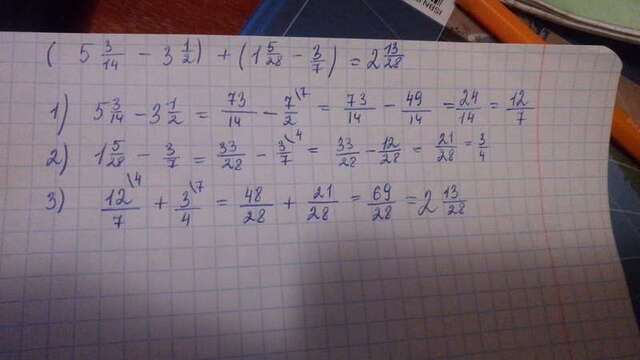 ( 5 3/14 − 3 1/2 ) + ( 1 5/28 − 3/7 ) = 2 13/28
1) 5 3/14 − 3 1/2 = 73/14 − 7/2 \7 = 73/14 − 49/14 = 24/14 = 12/7
2) 1 5/28 − 3/7 = 33/28 − 3/7 \4 = 33/28 − 12/28 = 21/28 = 3/4
3) 12/7 \4 + 3/4 \7 = 48/28 + 21/28 = 69/28 = 2 13/28